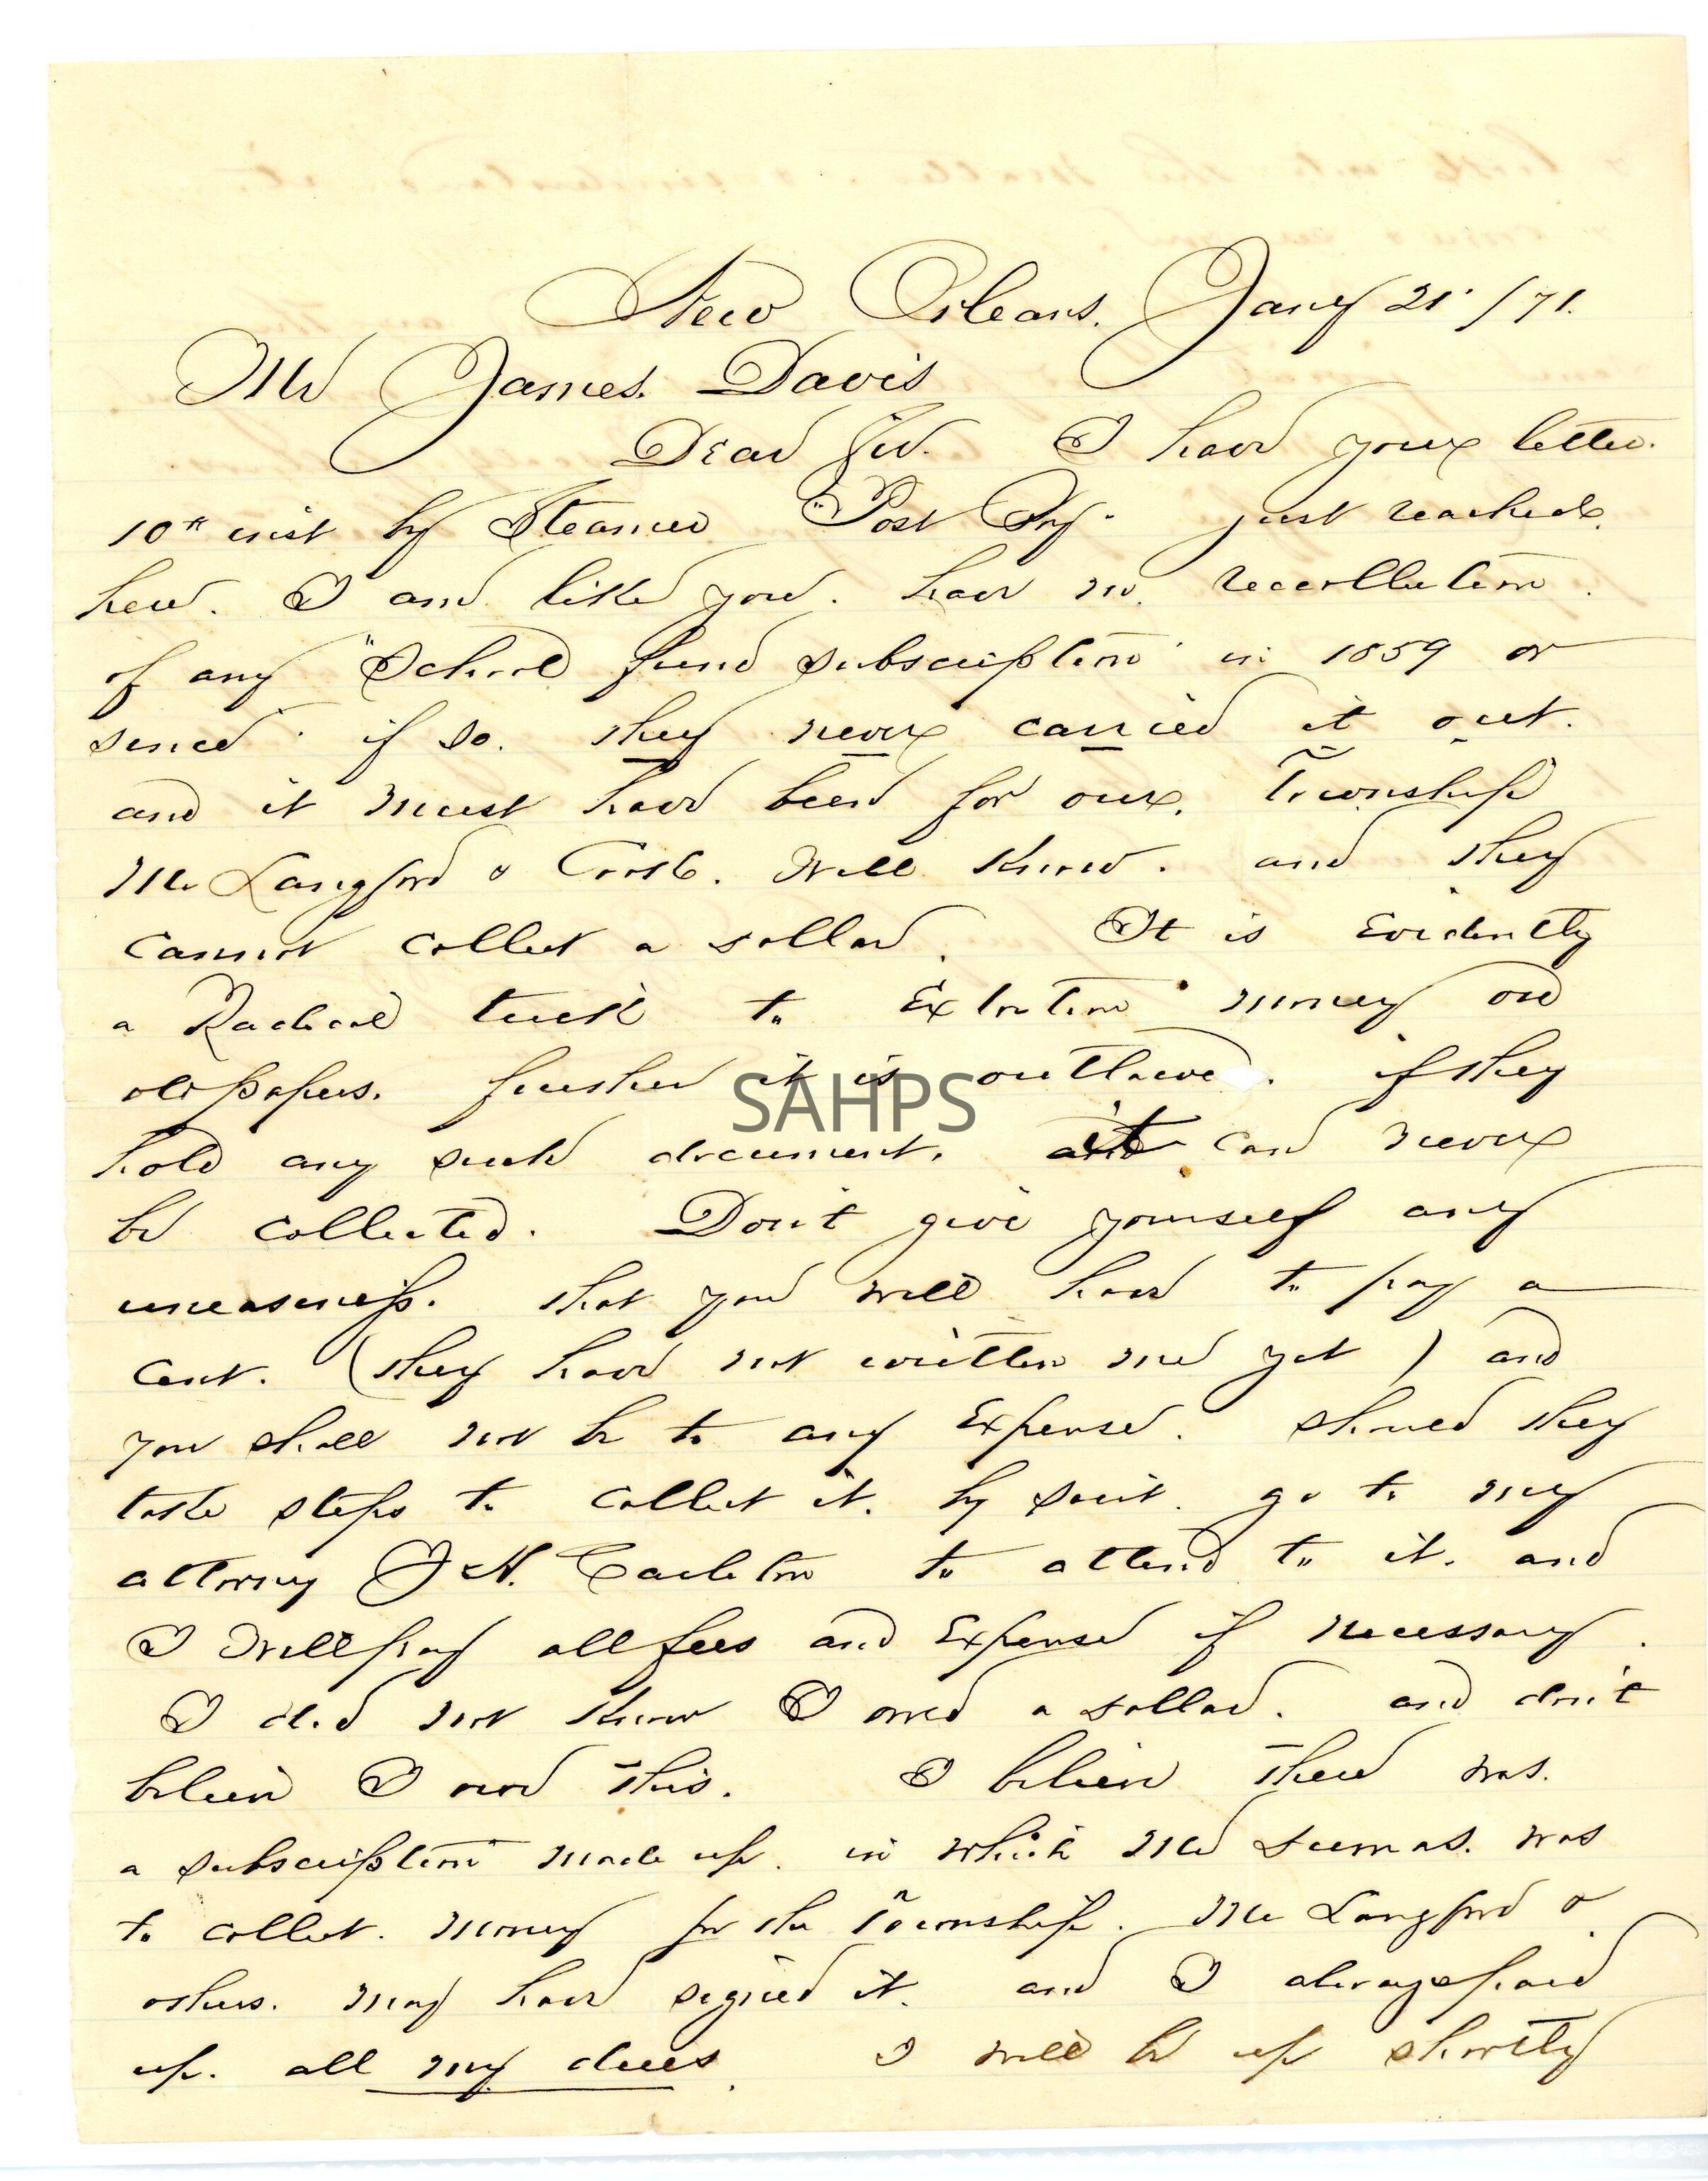 New Orleans. Jany 21 /71.
Mr James. Davis
Dear Sir. I have your letter.
10th inst by Steamer "Post Boy" just reached
here. I am like you. have no recollection.
of any "School fund subscription" in 1859 or
since. if so. they never carried it out.
and it must have been for our. Township
Mr Langford & Cook. will know. and they
cannot collect a dollar. It is Evidently
a Radical trick to Extortion money on
old papers. further it is outlawed. if they
hold any such document. it can never
be collected. Don't give yourself any
uneasiness. that you will have to pay a
cent. (they have not written me yet) and
you shall not be to any Expense. should they
take steps to collect it. by suit. go to my
attorney H. Carleton to attend to it. and
I will pay all fees and Expense if necessary.
I did not know I owed a dollar. and don't
believe I owe this. I believe there was.
a subscription made up. in which Mr was
to collect. money for the Township. Mr Langford &
others. may have signed it. and I always paid
up. all my dues. I will be up shortly
SAHPS